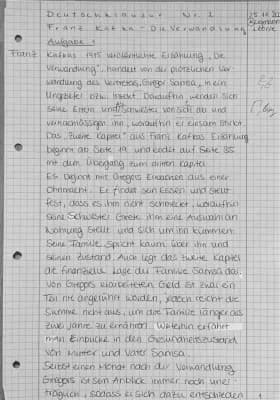 Deutschklausur Nr. 1
Franz Kafka - Die Verwandlung
Aufgabe 1
Franz Kafkas 1915 veröffentlichte Erzählung „Die
Verwandlung", handelt von der plötzlichen Ver-
wandlung des Vertreters, Gregor Samsa, in ein
Ungeziefer bzw. Insekt. Daraufhin wenden sich
seine Eltern und Schwester von sich ab und
vernachlässigen ihn, woraufhin er einsam stirbt.
Das "zweite Kapitel" aus Franz Kafkas Erzählung
beginnt ab Seite 19 und endet auf Seite 35
mit dem Übergang zum dritten Kapitel.
Es beginnt mit Gregors Erwachen aus einer
Ohnmacht. Er findet sein Essen und stellt
fest, dass es ihm nicht schmeckt, woraufhin
seine Schwester Grete ihm eine Auswahl an
Nahrung stellt und sich um ihn kümmert.
Seine Familie spricht kaum über ihn und
seinen Zustand. Auch legt das zweite Kapitel
die finanzielle Lage der Familie Samsa dar.
Von Gregors erarbeiteten Geld ist zwar ein
Teil nie angerührt worden, jedoch reicht die
Summe nicht aus, um die Familie länger als
zwei Jahre zu ernähren. Weiterhin erfährt
man Einblicke in den Gesundheitszustand
von Mutter und Vater Samsa.
Selbst einen Monat nach der Verwandlung
Gregors ist sein Anblick immer noch uner-
träglich, sodass er sich dazu entschieden